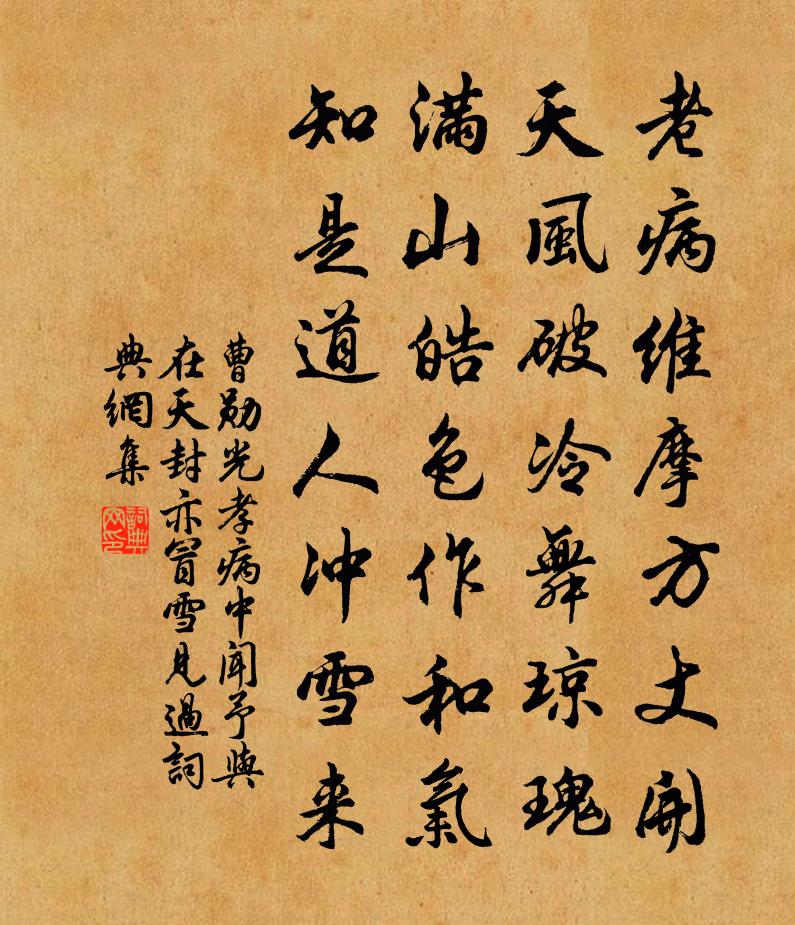 老病維摩方丈開
天風破冷舞瓊瑰
滿山皓色作和氣
知是道人冲雪来
曹勛光孝病中聞予與
在天封亦冒雪見過詞
典網集
詞典網印